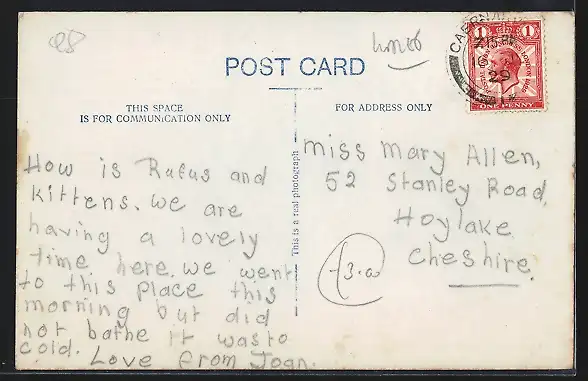 POST CARD
THIS SPACE
IS FOR COMMUNICATION ONLY
FOR ADDRESS ONLY
This is a real photograph
How is Rufus and
kittens. we are
having a lovely
time here. we went
to this place this
morning but did
not bathe it was to
cold. Love from Joan.
miss mary Allen,
52 Stanley Road,
Hoylake
Cheshire.
£3.00
1 1
ONE PENNY
29